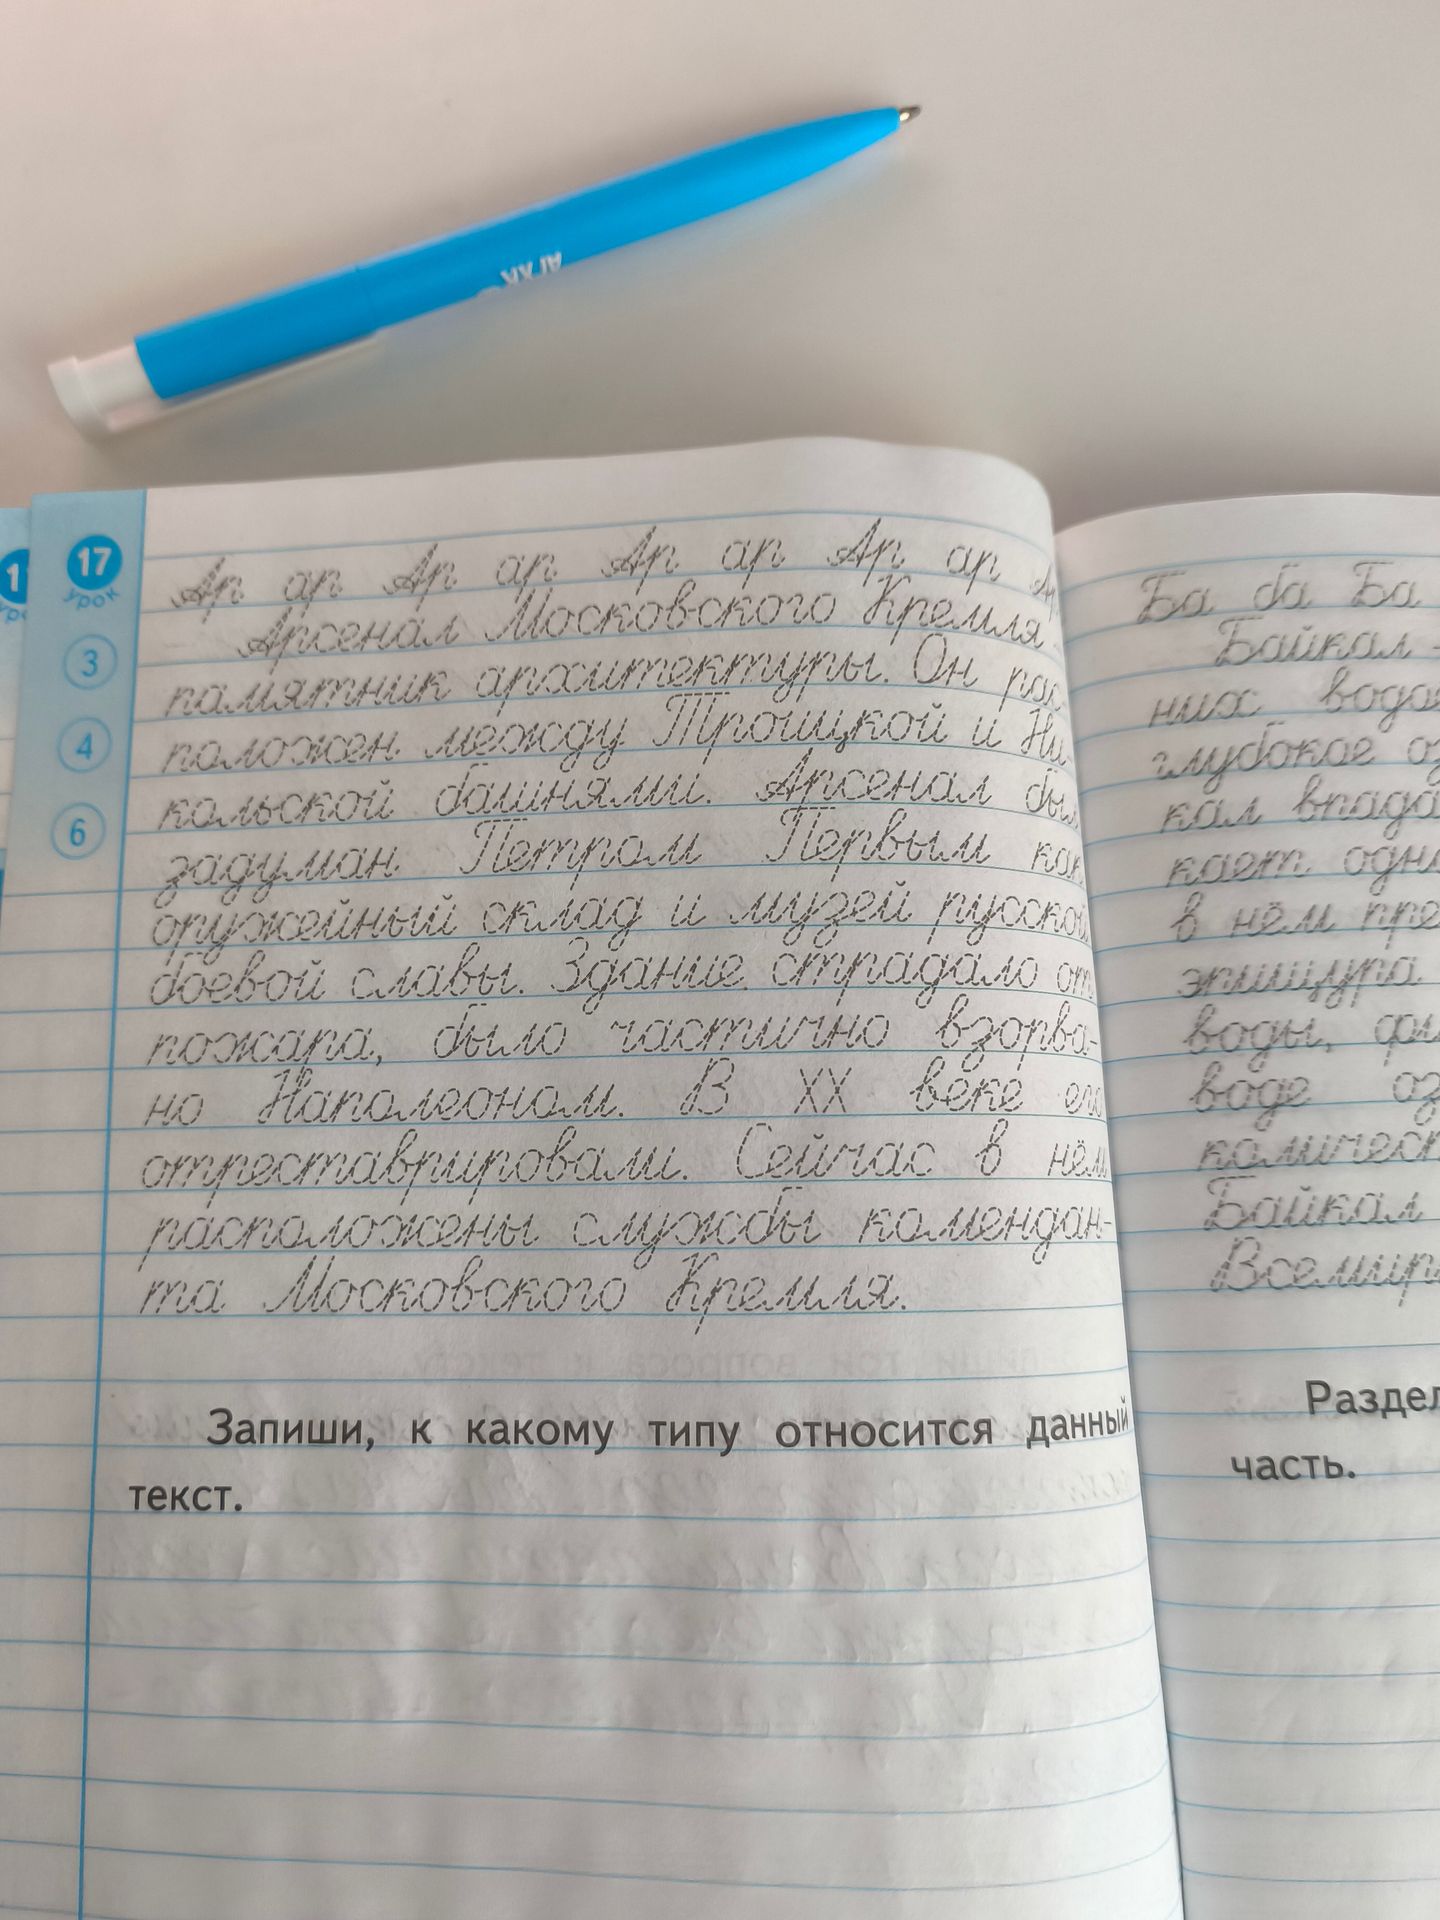 17
урок
3
4
6
Ар ар Ар ар Ар ар Ар ар Ар
Арсенал Московского Кремля –
памятник архитектуры. Он рас
положен между Троицкой и Ни-
кольской башнями. Арсенал был
задуман Петром Первым как
оружейный склад и музей русской
боевой славы. Здание страдало от
пожара, было частично взорва-
но Наполеоном. В XX веке его
отреставрировали. Сейчас в нём
расположены службы комендан-
та Московского Кремля.
Запиши, к какому типу относится данный
текст.
Ба ба Ба
Байкал -
них
глубокое
кал
кает
в нём
эпишура
воды,
воде
Байкал
часть.